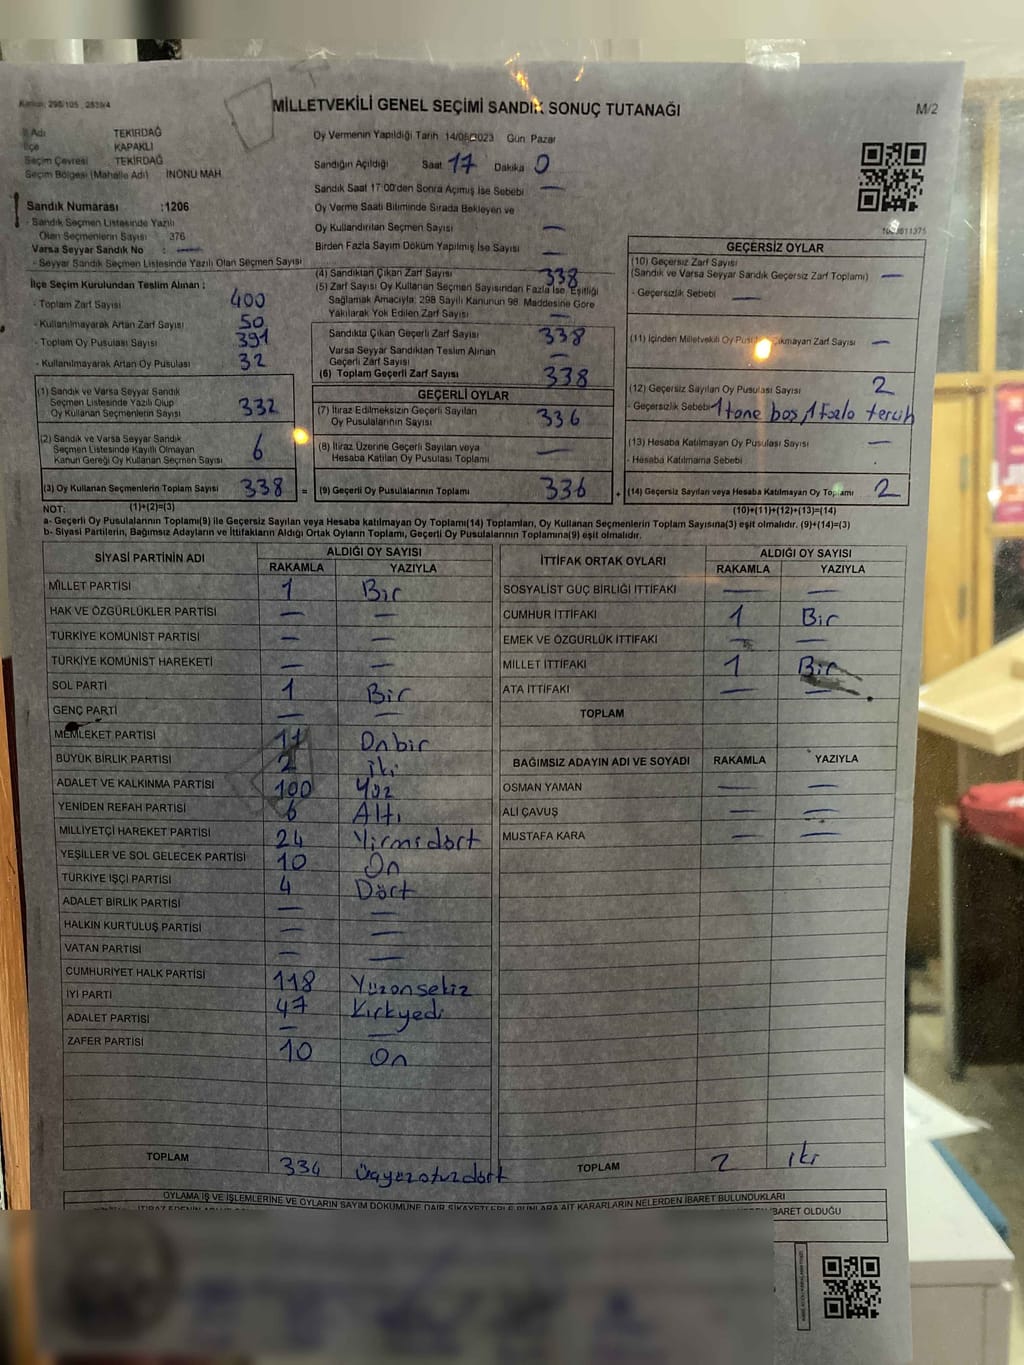 Kanun: 298/105 , 2839/4
MİLLETVEKİLİ GENEL SEÇİMİ SANDIK SONUÇ TUTANAĞI
M/2
İl Adı TEKİRDAĞ
İlçe KAPAKLI
Seçim Çevresi TEKİRDAĞ
Seçim Bölgesi (Mahalle Adı) İNÖNÜ MAH.
Sandık Numarası :1206
- Sandık Seçmen Listesinde Yazılı
Olan Seçmenlerin Sayısı 376
Varsa Seyyar Sandık No : —
- Seyyar Sandık Seçmen Listesinde Yazılı Olan Seçmen Sayısı
İlçe Seçim Kurulundan Teslim Alınan :
- Toplam Zarf Sayısı 400
- Kullanılmayarak Artan Zarf Sayısı 50
- Toplam Oy Pusulası Sayısı 391
- Kullanılmayarak Artan Oy Pusulası 32
(1) Sandık ve Varsa Seyyar Sandık
Seçmen Listesinde Yazılı Olup
Oy Kullanan Seçmenlerin Sayısı 332
(2) Sandık ve Varsa Seyyar Sandık
Seçmen Listesinde Kayıtlı Olmayan
Kanun Gereği Oy Kullanan Seçmen Sayısı 6
(3) Oy Kullanan Seçmenlerin Toplam Sayısı 338 =
(1)+(2)=(3)
Oy Vermenin Yapıldığı Tarih 14/05/2023 Gün Pazar
Sandığın Açıldığı Saat 17 Dakika 0
Sandık Saat 17:00'den Sonra Açılmış İse Sebebi —
Oy Verme Saati Bitiminde Sırada Bekleyen ve
Oy Kullandırılan Seçmen Sayısı —
Birden Fazla Sayım Döküm Yapılmış İse Sayısı —
(4) Sandıktan Çıkan Zarf Sayısı 338
(5) Zarf Sayısı Oy Kullanan Seçmen Sayısından Fazla İse, Eşitliği
Sağlamak Amacıyla; 298 Sayılı Kanunun 98. Maddesine Göre
Yakılarak Yok Edilen Zarf Sayısı —
Sandıkta Çıkan Geçerli Zarf Sayısı 338
Varsa Seyyar Sandıktan Teslim Alınan
Geçerli Zarf Sayısı —
(6) Toplam Geçerli Zarf Sayısı 338
GEÇERLİ OYLAR
(7) İtiraz Edilmeksizin Geçerli Sayılan
Oy Pusulalarının Sayısı 336
(8) İtiraz Üzerine Geçerli Sayılan veya
Hesaba Katılan Oy Pusulası Toplamı —
(9) Geçerli Oy Pusulalarının Toplamı 336 +
GEÇERSİZ OYLAR
(10) Geçersiz Zarf Sayısı
(Sandık ve Varsa Seyyar Sandık Geçersiz Zarf Toplamı) —
- Geçersizlik Sebebi —
(11) İçinden Milletvekili Oy Çıkmayan Zarf Sayısı —
(12) Geçersiz Sayılan Oy Pusulası Sayısı 2
- Geçersizlik Sebebi 1 tane boş, 1 fazla tercih
(13) Hesaba Katılmayan Oy Pusulası Sayısı —
- Hesaba Katılmama Sebebi
(14) Geçersiz Sayılan veya Hesaba Katılmayan Oy Toplamı 2
(10)+(11)+(12)+(13)=(14)
NOT:
a- Geçerli Oy Pusulalarının Toplamı(9) ile Geçersiz Sayılan veya Hesaba katılmayan Oy Toplamı(14) Toplamları, Oy Kullanan Seçmenlerin Toplam Sayısına(3) eşit olmalıdır. (9)+(14)=(3)
b- Siyasi Partilerin, Bağımsız Adayların ve İttifakların Aldığı Ortak Oyların Toplamı, Geçerli Oy Pusulalarının Toplamına(9) eşit olmalıdır.
SİYASİ PARTİNİN ADI ALDIĞI OY SAYISI
RAKAMLA YAZIYLA
MİLLET PARTİSİ 1 Bir
HAK VE ÖZGÜRLÜKLER PARTİSİ — —
TÜRKİYE KOMÜNİST PARTİSİ — —
TÜRKİYE KOMÜNİST HAREKETİ — —
SOL PARTİ 1 Bir
GENÇ PARTİ — —
MEMLEKET PARTİSİ 11 Onbir
BÜYÜK BİRLİK PARTİSİ 2 iki
ADALET VE KALKINMA PARTİSİ 100 Yüz
YENİDEN REFAH PARTİSİ 6 Altı
MİLLİYETÇİ HAREKET PARTİSİ 24 Yirmidört
YEŞİLLER VE SOL GELECEK PARTİSİ 10 On
TÜRKİYE İŞÇİ PARTİSİ 4 Dört
ADALET BİRLİK PARTİSİ — —
HALKIN KURTULUŞ PARTİSİ — —
VATAN PARTİSİ — —
CUMHURİYET HALK PARTİSİ 118 Yüzonsekiz
İYİ PARTİ 47 Kırkyedi
ADALET PARTİSİ — —
ZAFER PARTİSİ 10 On
TOPLAM 334 üçyüzotuzdört
İTTİFAK ORTAK OYLARI ALDIĞI OY SAYISI
RAKAMLA YAZIYLA
SOSYALİST GÜÇ BİRLİĞİ İTTİFAKI — —
CUMHUR İTTİFAKI 1 Bir
EMEK VE ÖZGÜRLÜK İTTİFAKI — —
MİLLET İTTİFAKI 1 Bir
ATA İTTİFAKI — —
TOPLAM
BAĞIMSIZ ADAYIN ADI VE SOYADI RAKAMLA YAZIYLA
OSMAN YAMAN — —
ALİ ÇAVUŞ — —
MUSTAFA KARA — —
TOPLAM 2 iki
OYLAMA İŞ VE İŞLEMLERİNE VE OYLARIN SAYIM DÖKÜMÜNE DAİR ŞİKAYETLERLE BUNLARA AİT KARARLARIN NELERDEN İBARET BULUNDUKLARI
İBARET OLDUĞU